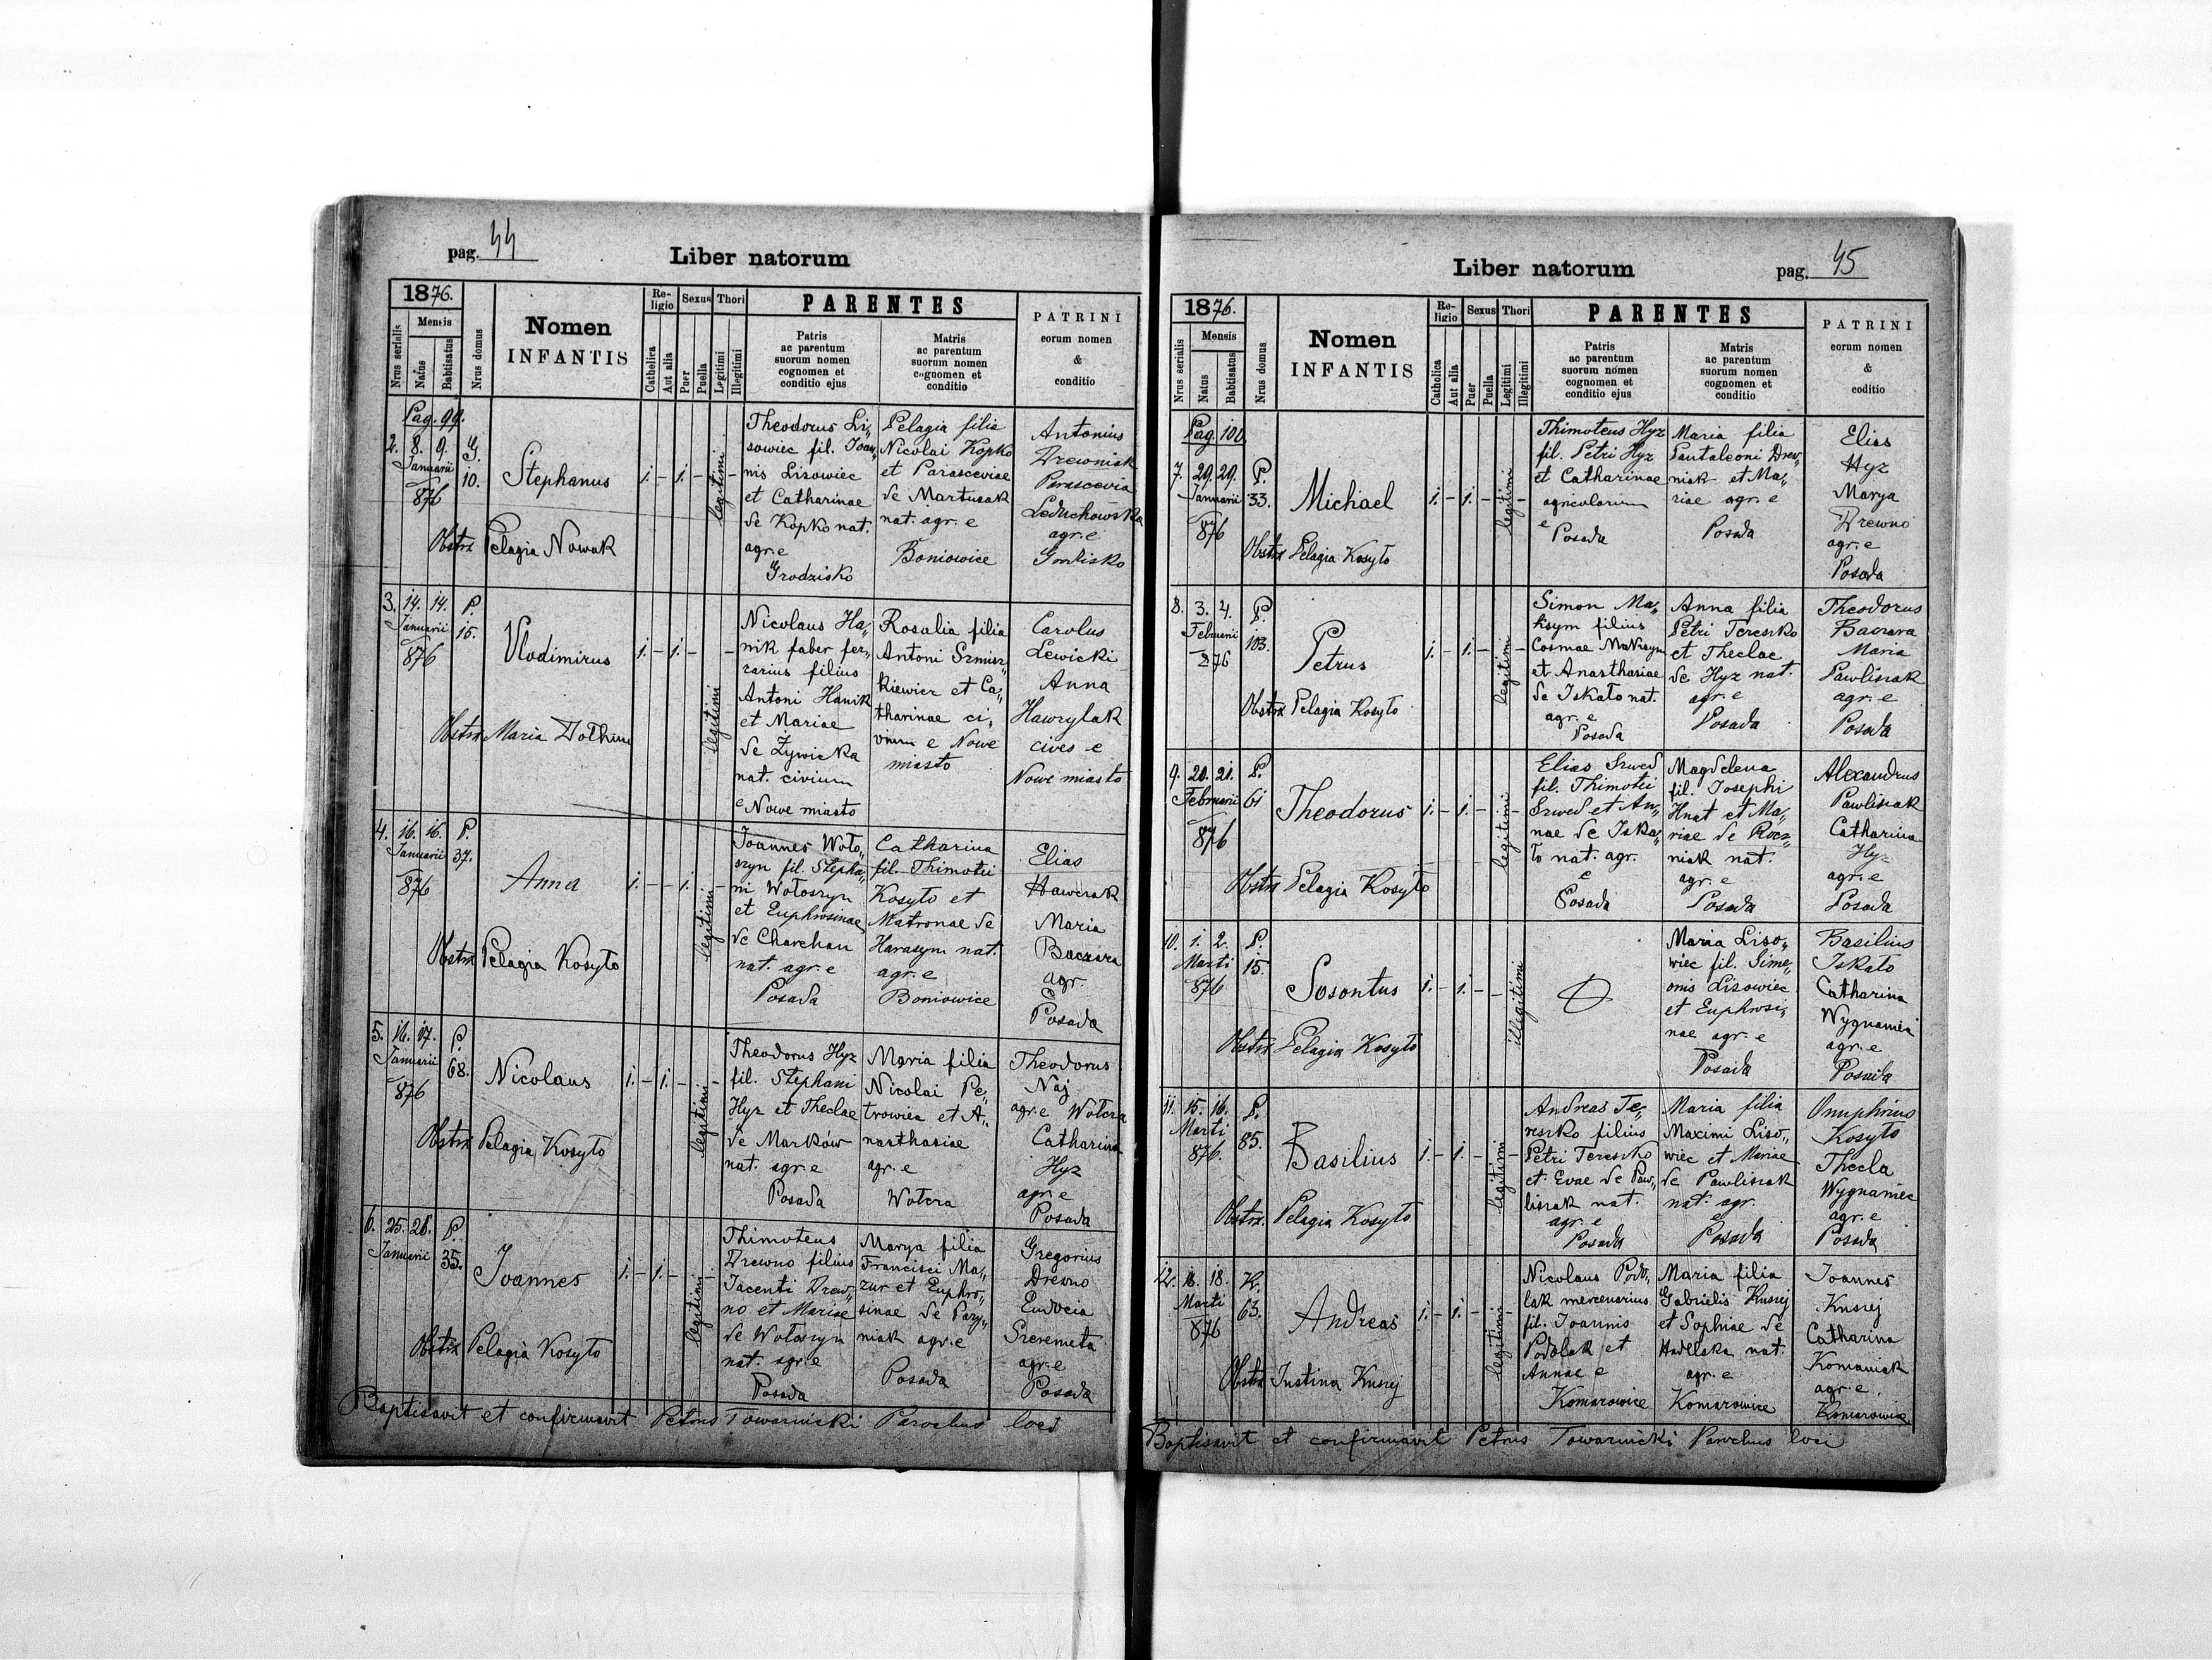 pag. 44
Liber natorum
1876.
Nrus serialis
Mensis
Natus
Babtisatus
Nrus domus
Nomen
INFANTIS
Re-
ligio
Catholica
Aut alia
Sexus
Puer
Puella
Thori
Legitimi
Illegitimi
PARENTES
Patris
ac parentum
suorum nomen
cognomen et
conditio ejus
Matris
ac parentum
suorum nomen
cognomen et
conditio
PATRINI
eorum nomen
&
conditio
Pag. 99.
2. 8. 9. G.
Januarii 10.
876
Stephanus
1. – 1. – legitimi –
Obstrx Pelagia Nowak
Theodorus Li„
sowiec fil. Joan„
nis Lisowiec
et Catharinae
de Kopko nat.
agr. e
Grodzisko
Pelagia filia
Nicolai Kopko
et Parasceviae
de Martusak
nat. agr. e
Boniowice
Antonius
Drewniak
Parascevia
Leduchowska
agr. e
3. 14. 14. P.
Januarii 15.
876
Vladimirus
1. – 1. – legitimi –
Obstrx Maria
Nicolaus Ha„
nik faber fer„
rarius filius
Antoni Hanik
et Mariae
de Żywicka
nat. civium
e Nowe miasto
Rosalia filia
Antoni Szmisz
kiewicz et Ca„
tharinae ci„
vium e Nowe
miasto
Carolus
Lewicki
Anna
Hawrylak
cives e
Nowe miasto
4. 16. 16. P.
Januarii 37.
876
Anna
1. – – 1. legitimi –
Obstrx Pelagia Kosyło
Joannes Woło„
szyn fil. Stepha„
ni Wołoszyn
et Euphrosinae
de Charchan
nat. agr. e
Posada
Catharina
fil. Thimotei
Kosyło et
Matronae de
Harasym nat.
agr. e
Boniowice
Elias
Hawczak
Maria
Baczara
agr.
e
Posada
5. 16. 17. P.
Januarii 68.
876
Nicolaus
1. – 1. – legitimi –
Obstrx Pelagia Kosyło
Theodorus Hyz
fil. Stephani
Hyz et Theclae
de Marków
nat. agr. e
Posada
Maria filia
Nicolai Pe„
trowiec et A„
nasthasiae
agr. e
Wołcza
Theodorus
Naj
agr. e Wołcza
Catharina
Hyz
agr. e
Posada
6. 25. 26. P.
Januarii 35.
Joannes
1. – 1. – legitimi –
Obstrx Pelagia Kosyło
Thimoteus
Drewno filius
Jacenti Drew„
no et Mariae
de Wołoszyn
nat. agr. e
Posada
Marya filia
Francisci Ma„
zur et Euphro„
sinae de Pary„
niak agr. e
Posada
Gregorius
Drewno
Eudocia
Szeremeta
agr. e
Posada
Baptisavit et confirmavit Petrus Towarnicki Parochus loci
Liber natorum
pag. 45
1876.
Nrus serialis
Mensis
Natus
Babtisatus
Nrus domus
Nomen
INFANTIS
Re-
ligio
Catholica
Aut alia
Sexus
Puer
Puella
Thori
Legitimi
Illegitimi
PARENTES
Patris
ac parentum
suorum nomen
cognomen et
conditio ejus
Matris
ac parentum
suorum nomen
cognomen et
conditio
PATRINI
eorum nomen
&
coditio
Pag. 100.
7. 29. 29. P.
Januarii 33.
876
Michael
1. – 1. – legitimi –
Obstrx Pelagia Kosyło
Thimoteus Hyz
fil. Petri Hyz
et Catharinae
agricolarum
e
Posada
Maria filia
Pantaleoni Drew„
niak et Ma„
riae agr. e
Posada
Elias
Hyz
Marya
Drewno
agr. e
Posada
8. 3. 4. P.
Februarii 103.
876
Petrus
1. – 1. – legitimi –
Obstrx Pelagia Kosyło
Simon Ma„
ksym filius
Cosmae Maksym
et Anasthasiae
de Iskało nat.
agr. e
Posada
Anna filia
Petri Tereszko
et Theclae
de Hyz nat.
agr. e
Posada
Theodorus
Baczara
Maria
Pawliszak
agr. e
Posada
9. 20. 21. P.
Februarii 61
876
Theodorus
1. – 1. – legitimi –
Obstrx Pelagia Kosyło
Elias Szwed
fil. Thimotei
Szwed et An„
nae de Iska„
ło nat. agr.
e
Posada
Magdelena
fil. Josephi
Hnat et Ma„
riae de Rocz„
niak nat.
agr. e
Posada
Alexandrus
Pawliszak
Catharina
Hyz
agr. e
Posada
10. 1. 2. P.
Marti 15.
876
Sosontus
1. – 1. – – illegitimi
Obstrx Pelagia Kosyło
Maria Liso„
wiec fil. Sime„
onis Lisowiec
et Euphrosi„
nae agr. e
Posada
Basilius
Iskało
Catharina
Wygnaniec
agr. e
Posada
11. 15. 16. P.
Marti 85.
876.
Basilius
1. – 1. – legitimi –
Obstrx. Pelagia Kosyło
Andreas Te„
reszko filius
Petri Tereszko
et Evae de Paw„
liszak nat.
agr. e
Posada
Maria filia
Maximi Liso„
wiec et Mariae
de Pawliszak
nat. agr.
e
Posada
Onuphrius
Kosyło
Thecla
Wygnaniec
agr. e
Posada
12. 16. 18. K.
Marti 63.
876
Andreas
1. – 1. – legitimi –
Obstrx Justina Kuszej
Nicolaus Podo„
lak mercenarius
fil. Joannis
Podolak et
Annae e
Komarowice
Maria filia
Gabrielis Kuszej
et Sophiae de
nat.
agr. e
Komarowice
Joannes
Kuszej
Catharina
Komaniak
agr. e.
Komarowice
Baptisavit et confirmavit Petrus Towarnicki Parochus loci